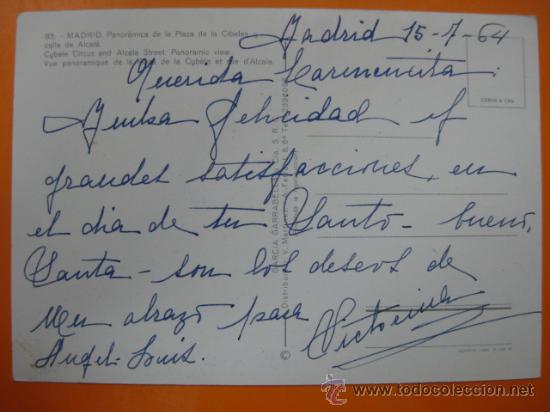 83. - MADRID. Panorámica de la Plaza de la Cibeles y
calle de Alcalá.
Cybele Circus and Alcala Street. Panoramic view.
Vue panoramique de la Place de la Cybèle et rue d'Alcala.
Madrid 15-7-64
Querida Carmencita:
Mucha felicidad y
grandes satisfacciones, en
el dia de tu Santo - bueno,
Santa - son los deseos de
Victorina
Un abrazo para
Angel-Luis.
GARCIA GARRABELLA
todocoleccion.net